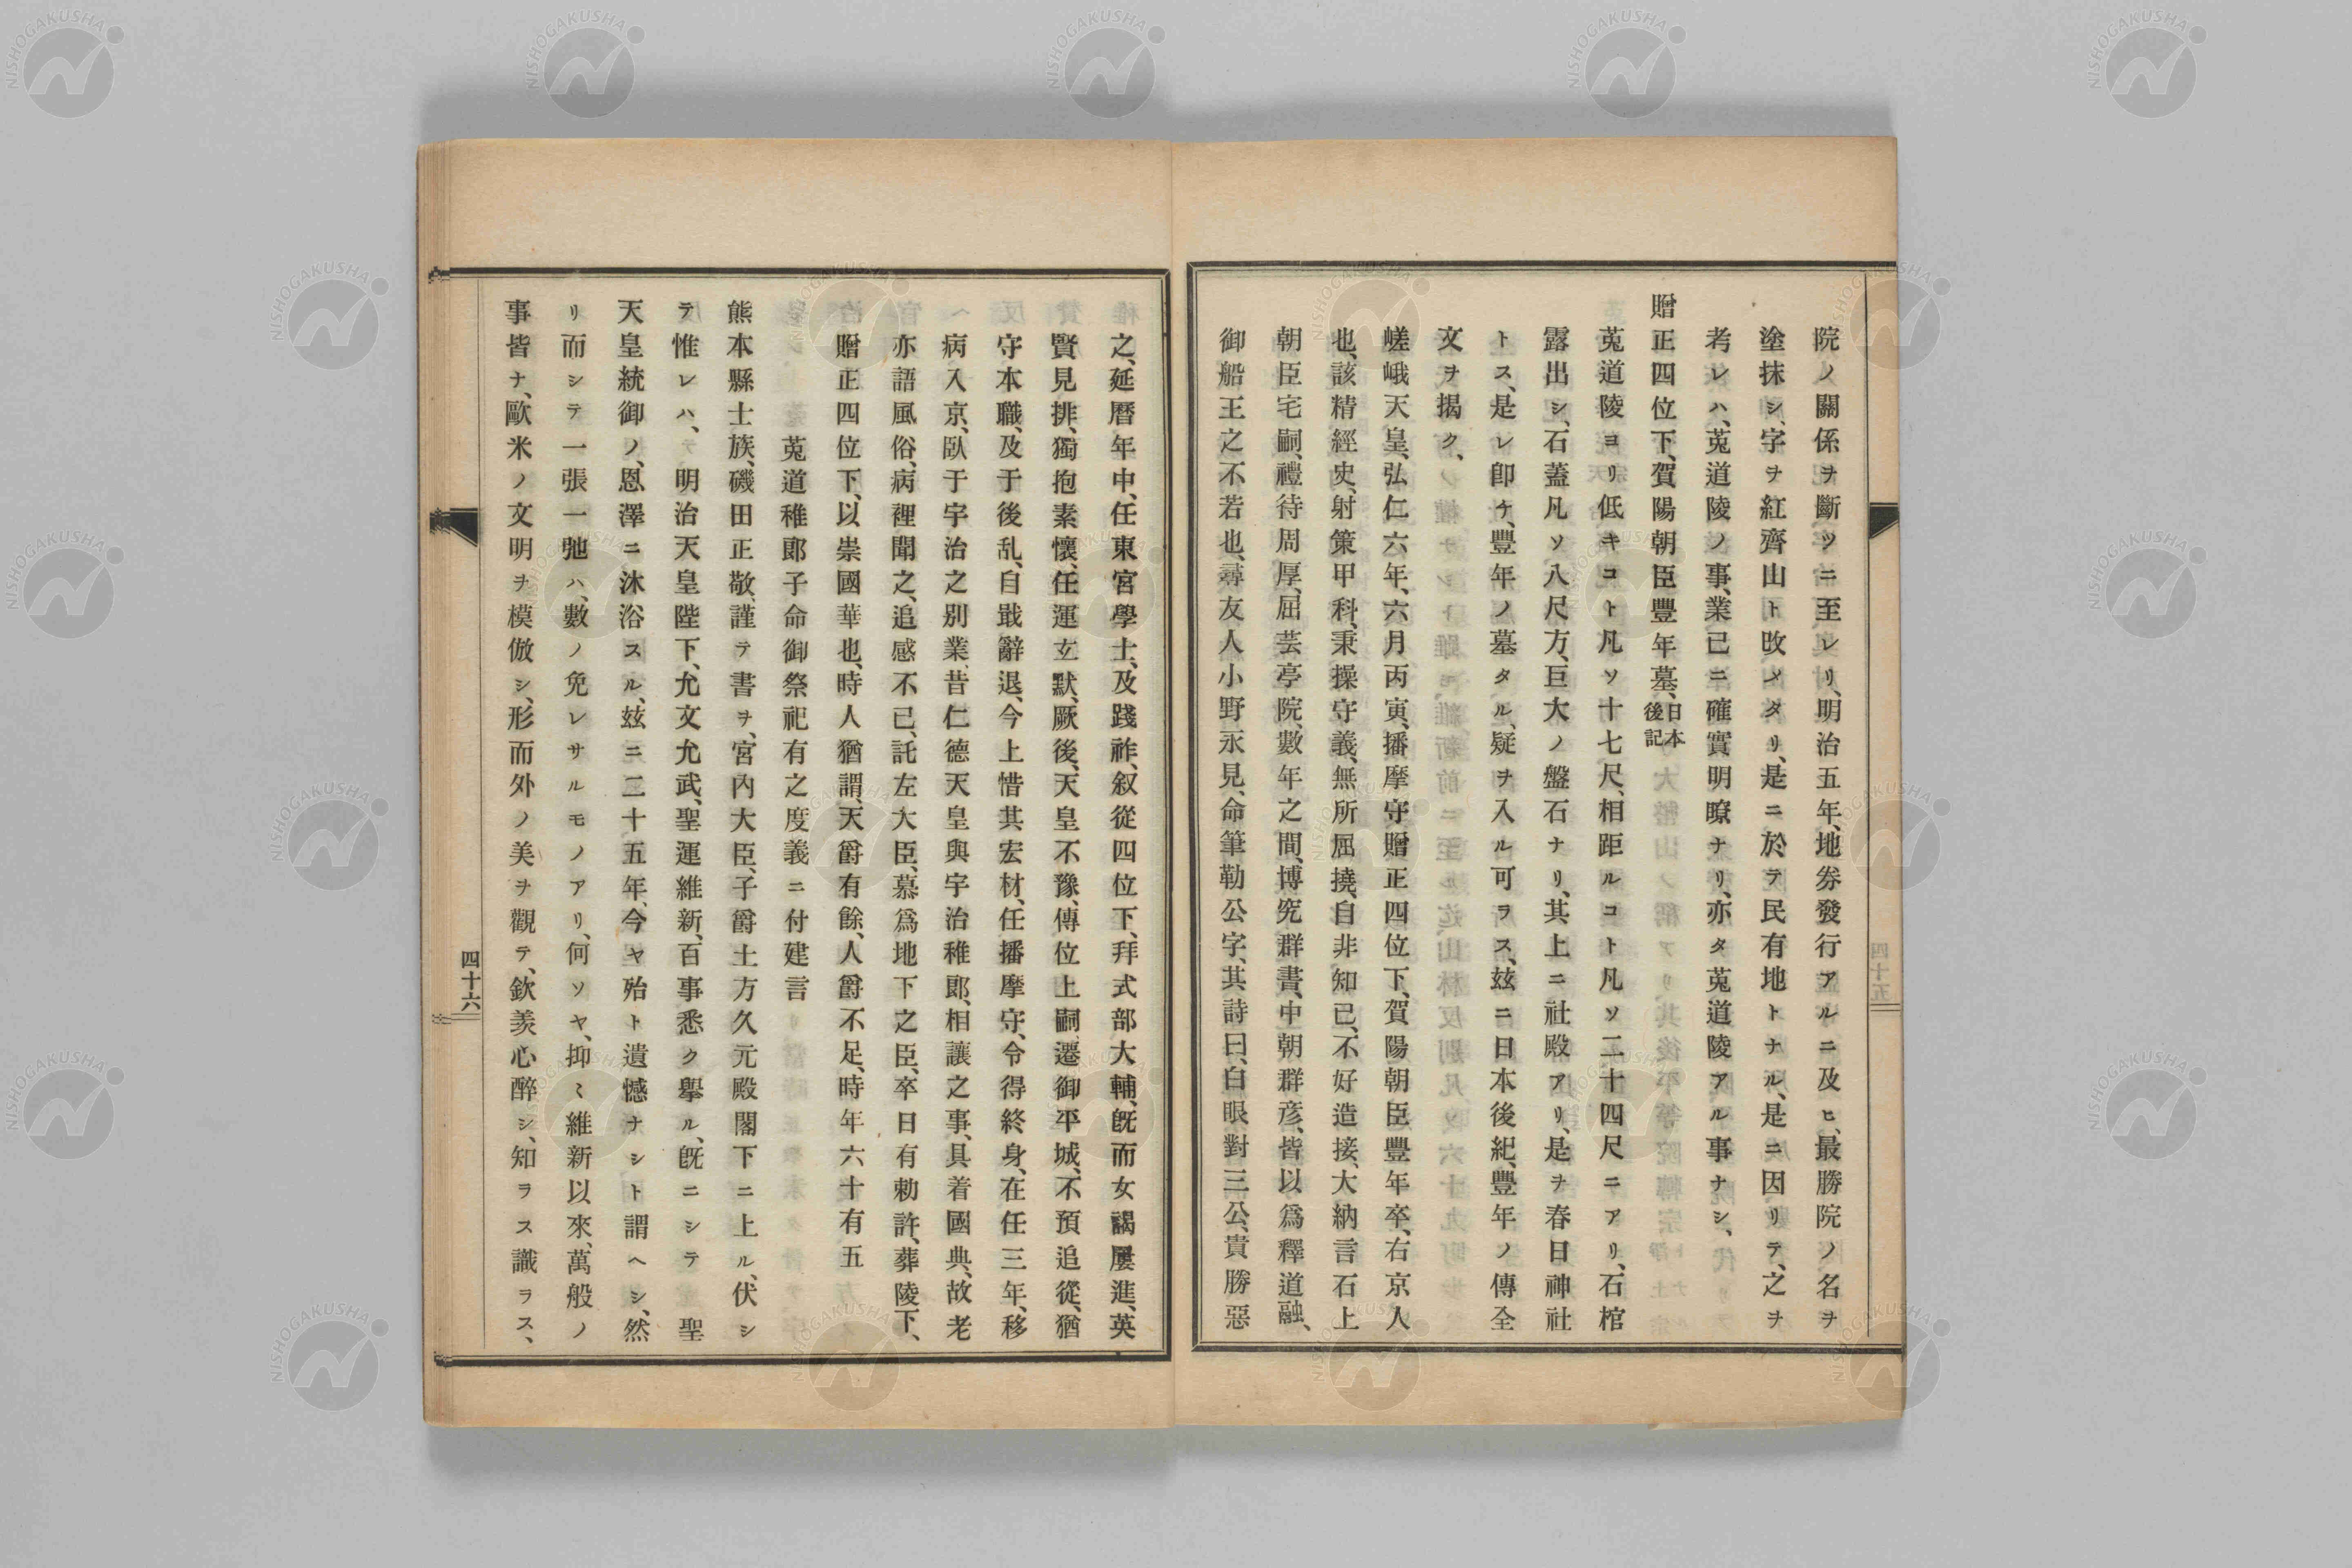 院ノ關係ヲ斷ツニ至レリ、明治五年、地券發行アルニ及ヒ、最勝院ノ名ヲ
塗抹シ、字ヲ紅齊山ト改メタリ、是ニ於テ民有地トナル、是ニ因リテ、之ヲ
考レハ、莵道陵ノ事、業已ニ確實明瞭ナリ、亦タ莵道陵アル事ナシ、
贈正四位下、賀陽朝臣豐年墓、日本後記
莵道陵ヨリ低キコト凡ソ十七尺、相距ルコト凡ソ二十四尺ニアリ、石棺
露出シ、石蓋凡ソ八尺方、巨大ノ盤石ナリ、其上ニ社殿アリ、是ヲ春日神社
トス、是レ卽チ、豐年ノ墓タル、疑ヲ入ル可ラス、玆ニ日本後紀、豐年ノ傳全
文ヲ揭ク、
嵯峨天皇、弘仁六年、六月丙寅、播摩守、贈正四位下、賀陽朝臣豐年卒、右京人
也、該精經史、射策甲科、秉操守義、無所屈撓、自非知己、不好造接、大納言石上
朝臣宅嗣、禮待周厚、屈芸亭院、數年之間、博究群書、中朝群彥、皆以爲釋道融、
御船王之不若也、尋友人小野永見、命筆勒公字、其詩曰、白眼對三公、貴勝惡
之、延曆年中、任東宮學士、及踐祚、叙從四位下、拜式部大輔、旣而女謁屢進、英
賢見排、獨抱素懷、任運玄默、厥後、天皇不豫、傳位上嗣、遷御平城、不預追從、猶
守本職、及于後乱、自戢辭退、今上惜其宏材、任播摩守、令得終身、在任三年、移
病入京、臥于宇治之別業、昔仁德天皇與宇治稚郞、相讓之事、具着國典、故老
亦語風俗、病裡聞之、追感不已、託左大臣、慕爲地下之臣、卒日有勅許、葬陵下、
贈正四位下、以崇國華也、時人猶謂、天爵有餘、人爵不足、時年六十有五
莵道稚郞子命御祭祀有之度義ニ付建言
熊本縣士族、磯田正敬、謹テ書ヲ、宮內大臣、子爵土方久元殿閣下ニ上ル、伏シ
テ惟レハ、明治天皇陛下、允文允武、聖運維新、百事悉ク擧ル、旣ニシテ聖
天皇統御ノ、恩澤ニ沐浴スル、玆ニ二十五年、今ヤ殆ト遺憾ナシト謂ヘシ、然
リ而シテ一張一弛ハ、數ノ免レサルモノアリ、何ソヤ、抑ミ維新以來、萬般ノ
事皆ナ、歐米ノ文明ヲ模倣シ、形而外ノ美ヲ觀テ、欽羨心醉シ、知ラス識ラス、
四十六
四十五
NISHOGAKUSHA